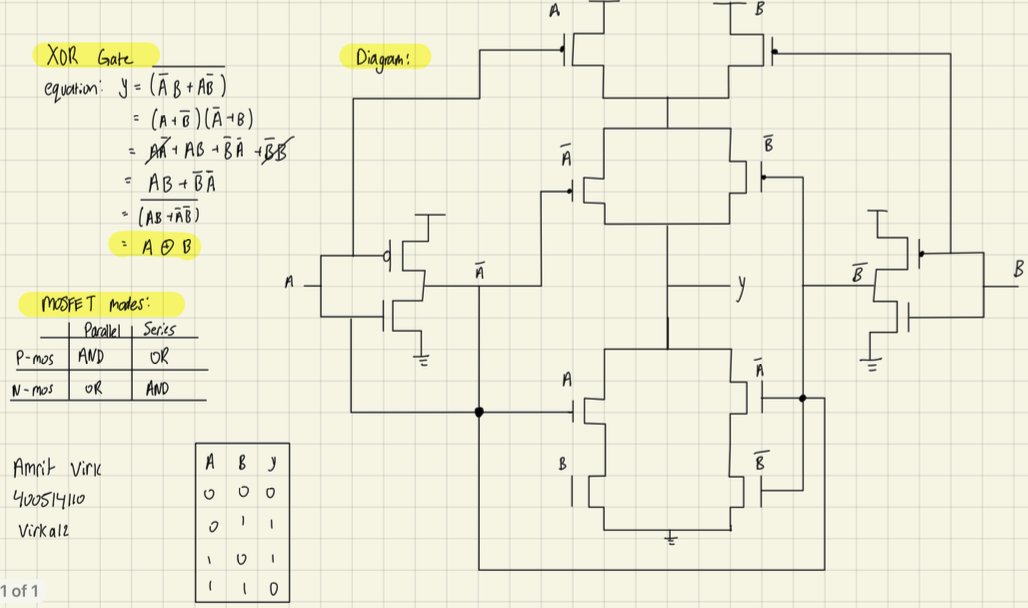 XOR Gate
equation: y = \overline{(A̅B + AB̅)}
= (A+B̅)(A̅+B)
= AA̅ + AB + B̅A̅ + B̅B
= AB + B̅A̅
= \overline{(AB + A̅B̅)}
= A ⊕ B
MOSFET modes:
Parallel Series
P-mos AND OR
N-mos OR AND
Amrit Virk
400514110
Virka12
A B y
0 0 0
0 1 1
1 0 1
1 1 0
Diagram:
A B
A̅ B̅
A A̅ y B̅ B
A A̅
B B̅
1 of 1